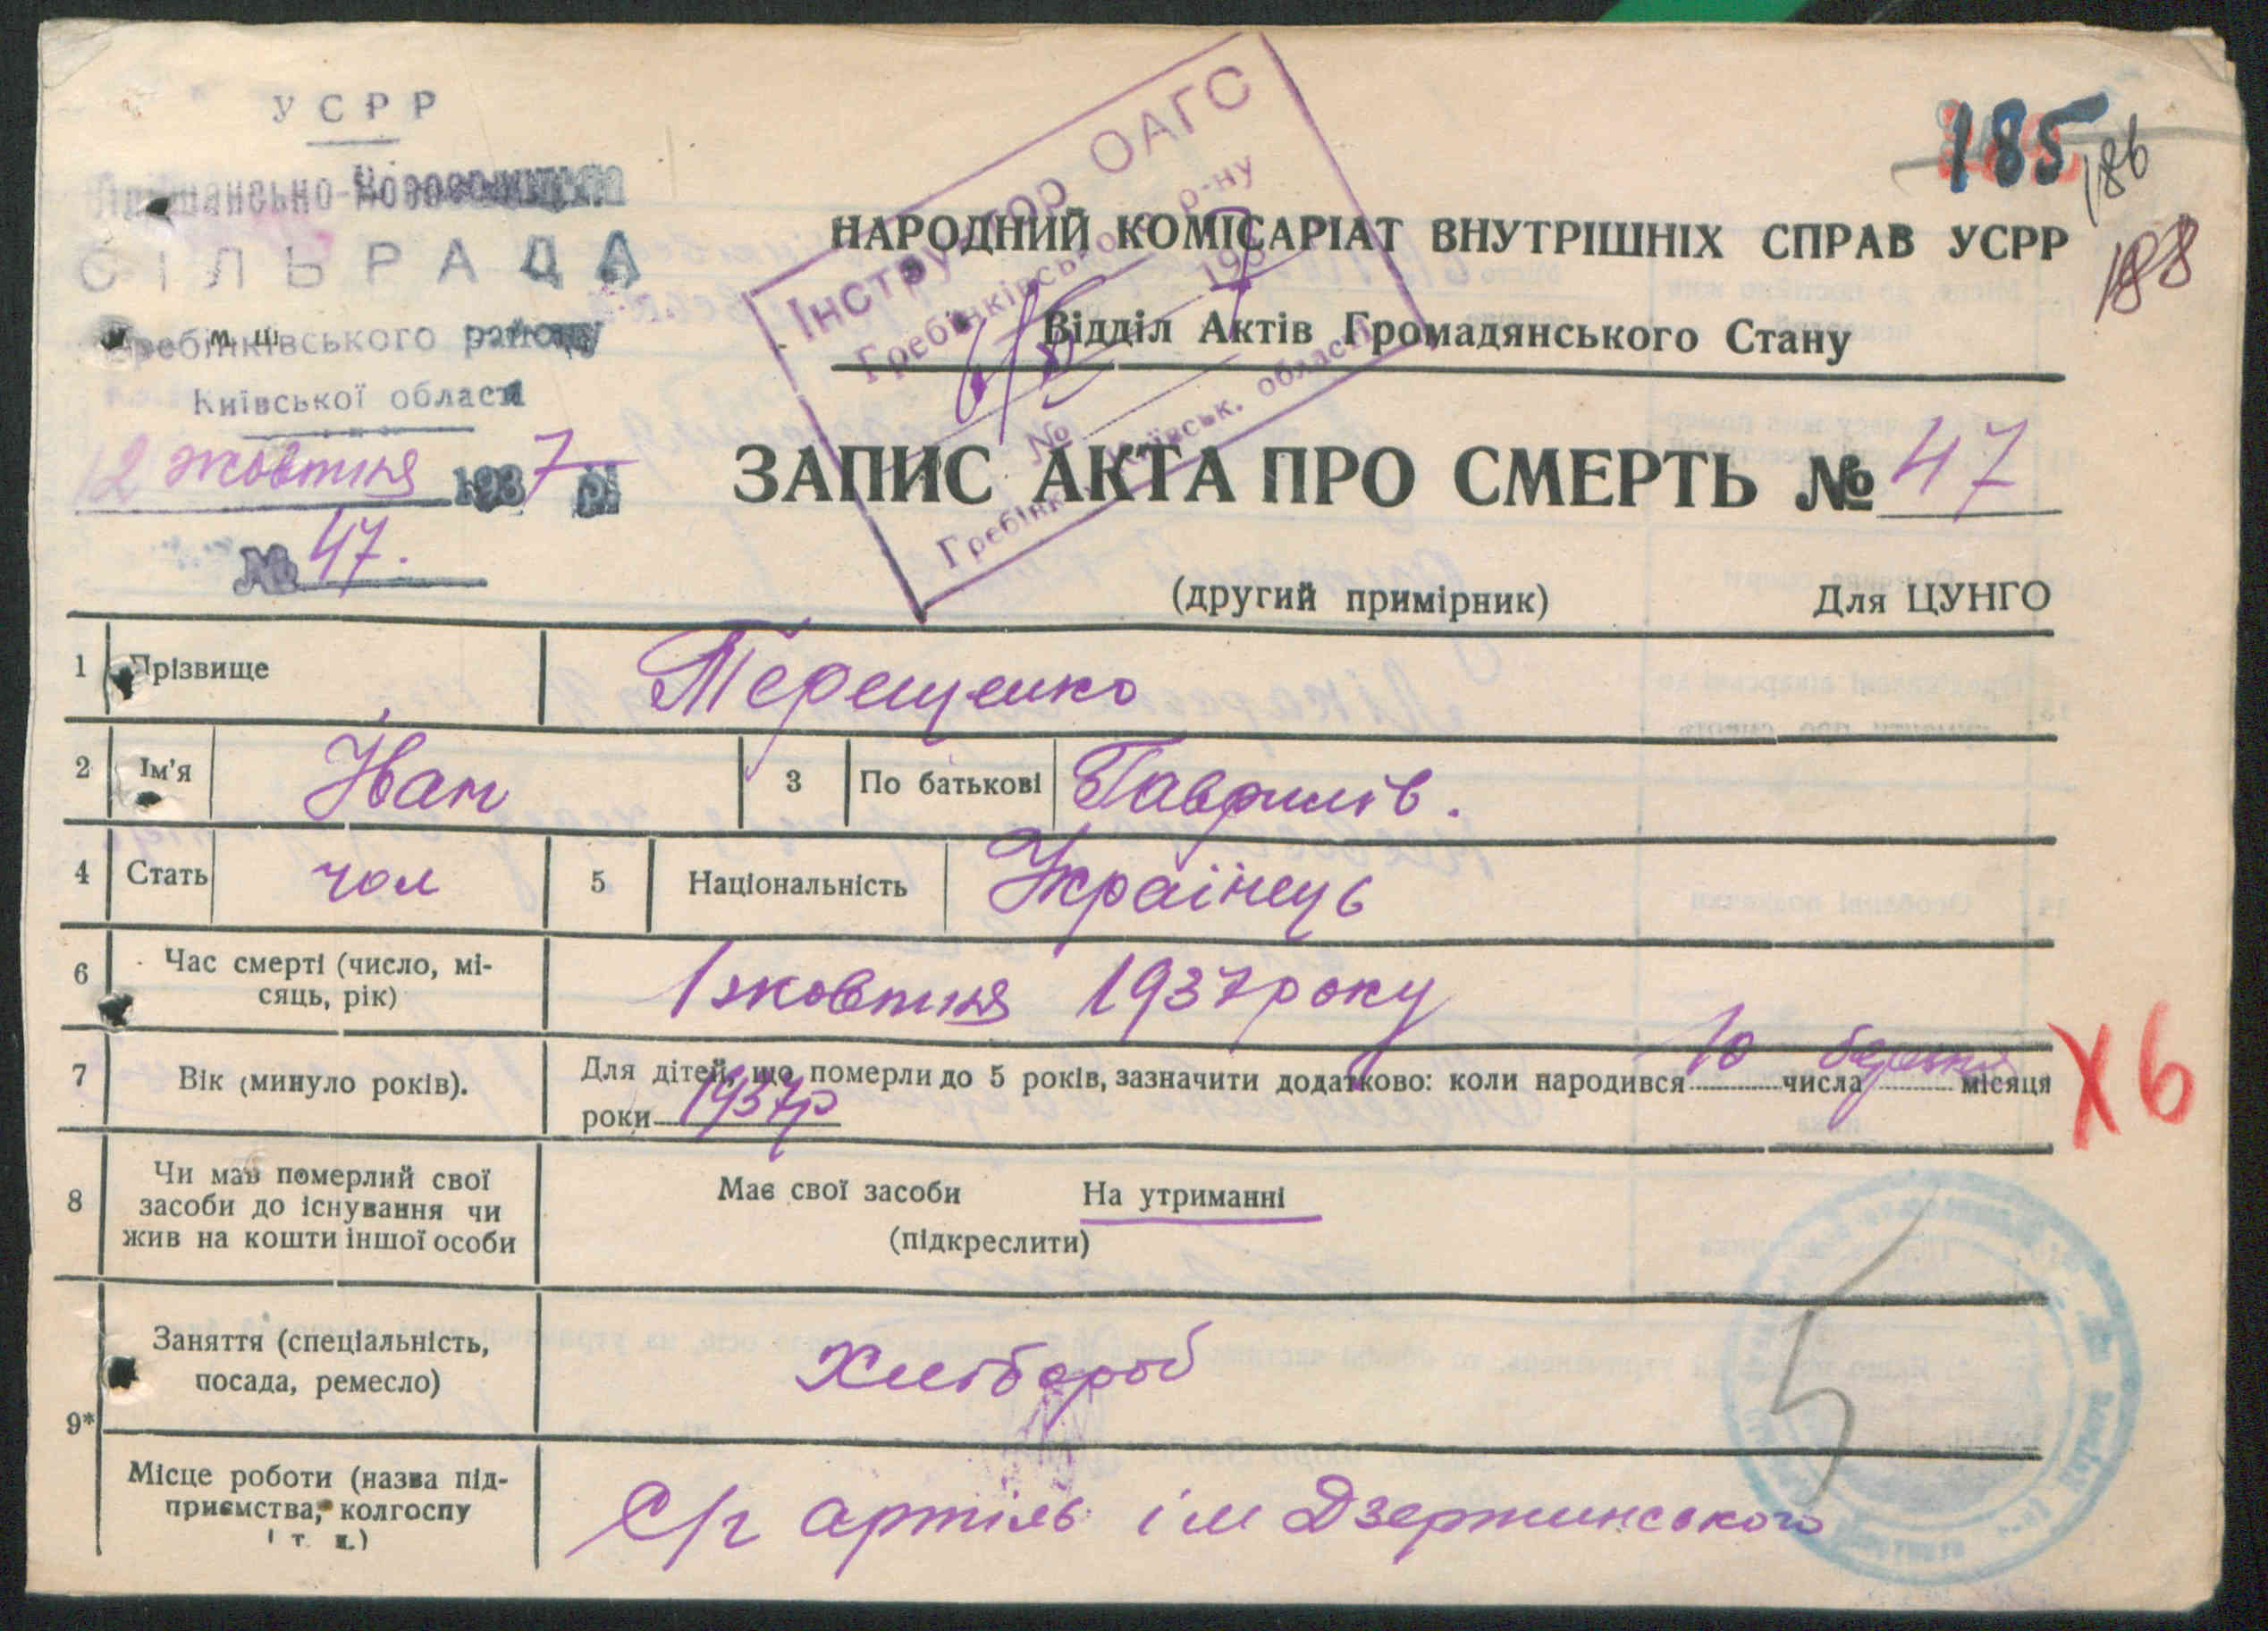 УСРР
СІЛЬРАДА
Гребінківського району
Київської області
12 жовтня 1937 р.
№ 47.
Інструктор ОАГС
Гребінківського р-ну
193
№
Гребінк. Київськ. області
185
186
188
НАРОДНИЙ КОМІСАРІАТ ВНУТРІШНІХ СПРАВ УСРР
Відділ Актів Громадянського Стану
ЗАПИС АКТА ПРО СМЕРТЬ № 47
(другий примірник) Для ЦУНГО
1 Прізвище Терещенко
2 Ім'я Иван 3 По батькові Гаврилів.
4 Стать чол 5 Національність Українець
6 Час смерті (число, мі-
сяць, рік) 1 жовтня 1937 року
7 Вік (минуло років). Для дітей, що померли до 5 років, зазначити додатково: коли народився 10 числа березня місяця
роки 1937р
Х6
8 Чи мав померлий свої
засоби до існування чи
жив на кошти іншої особи
Має свої засоби На утриманні
(підкреслити)
9* Заняття (спеціальність,
посада, ремесло) Хлібороб
Місце роботи (назва під-
приємства, колгоспу
і т. и.) С/г артіль ім Дзержинського
5